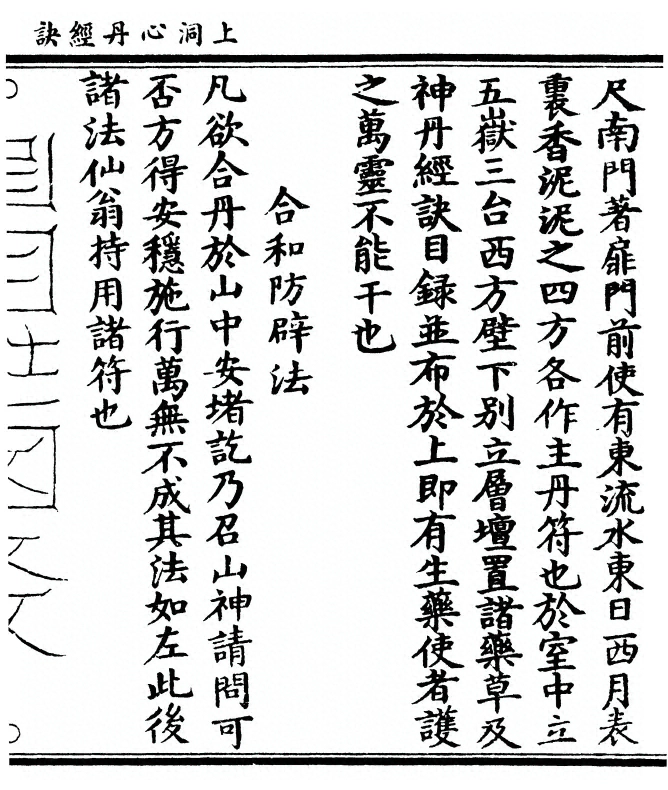 上洞心丹經訣
尺南門著扉門前使有東流水東日西月表
裏香泥泥之四方各作主丹符也於室中立
五嶽三台西方壁下別立層壇置諸藥草及
神丹經訣目録並布於上即有生藥使者護
之萬靈不能干也
合和防辟法
凡欲合丹於山中安堵訖乃召山神請問可
否方得安穩施行萬無不成其法如左此後
諸法仙翁持用諸符也